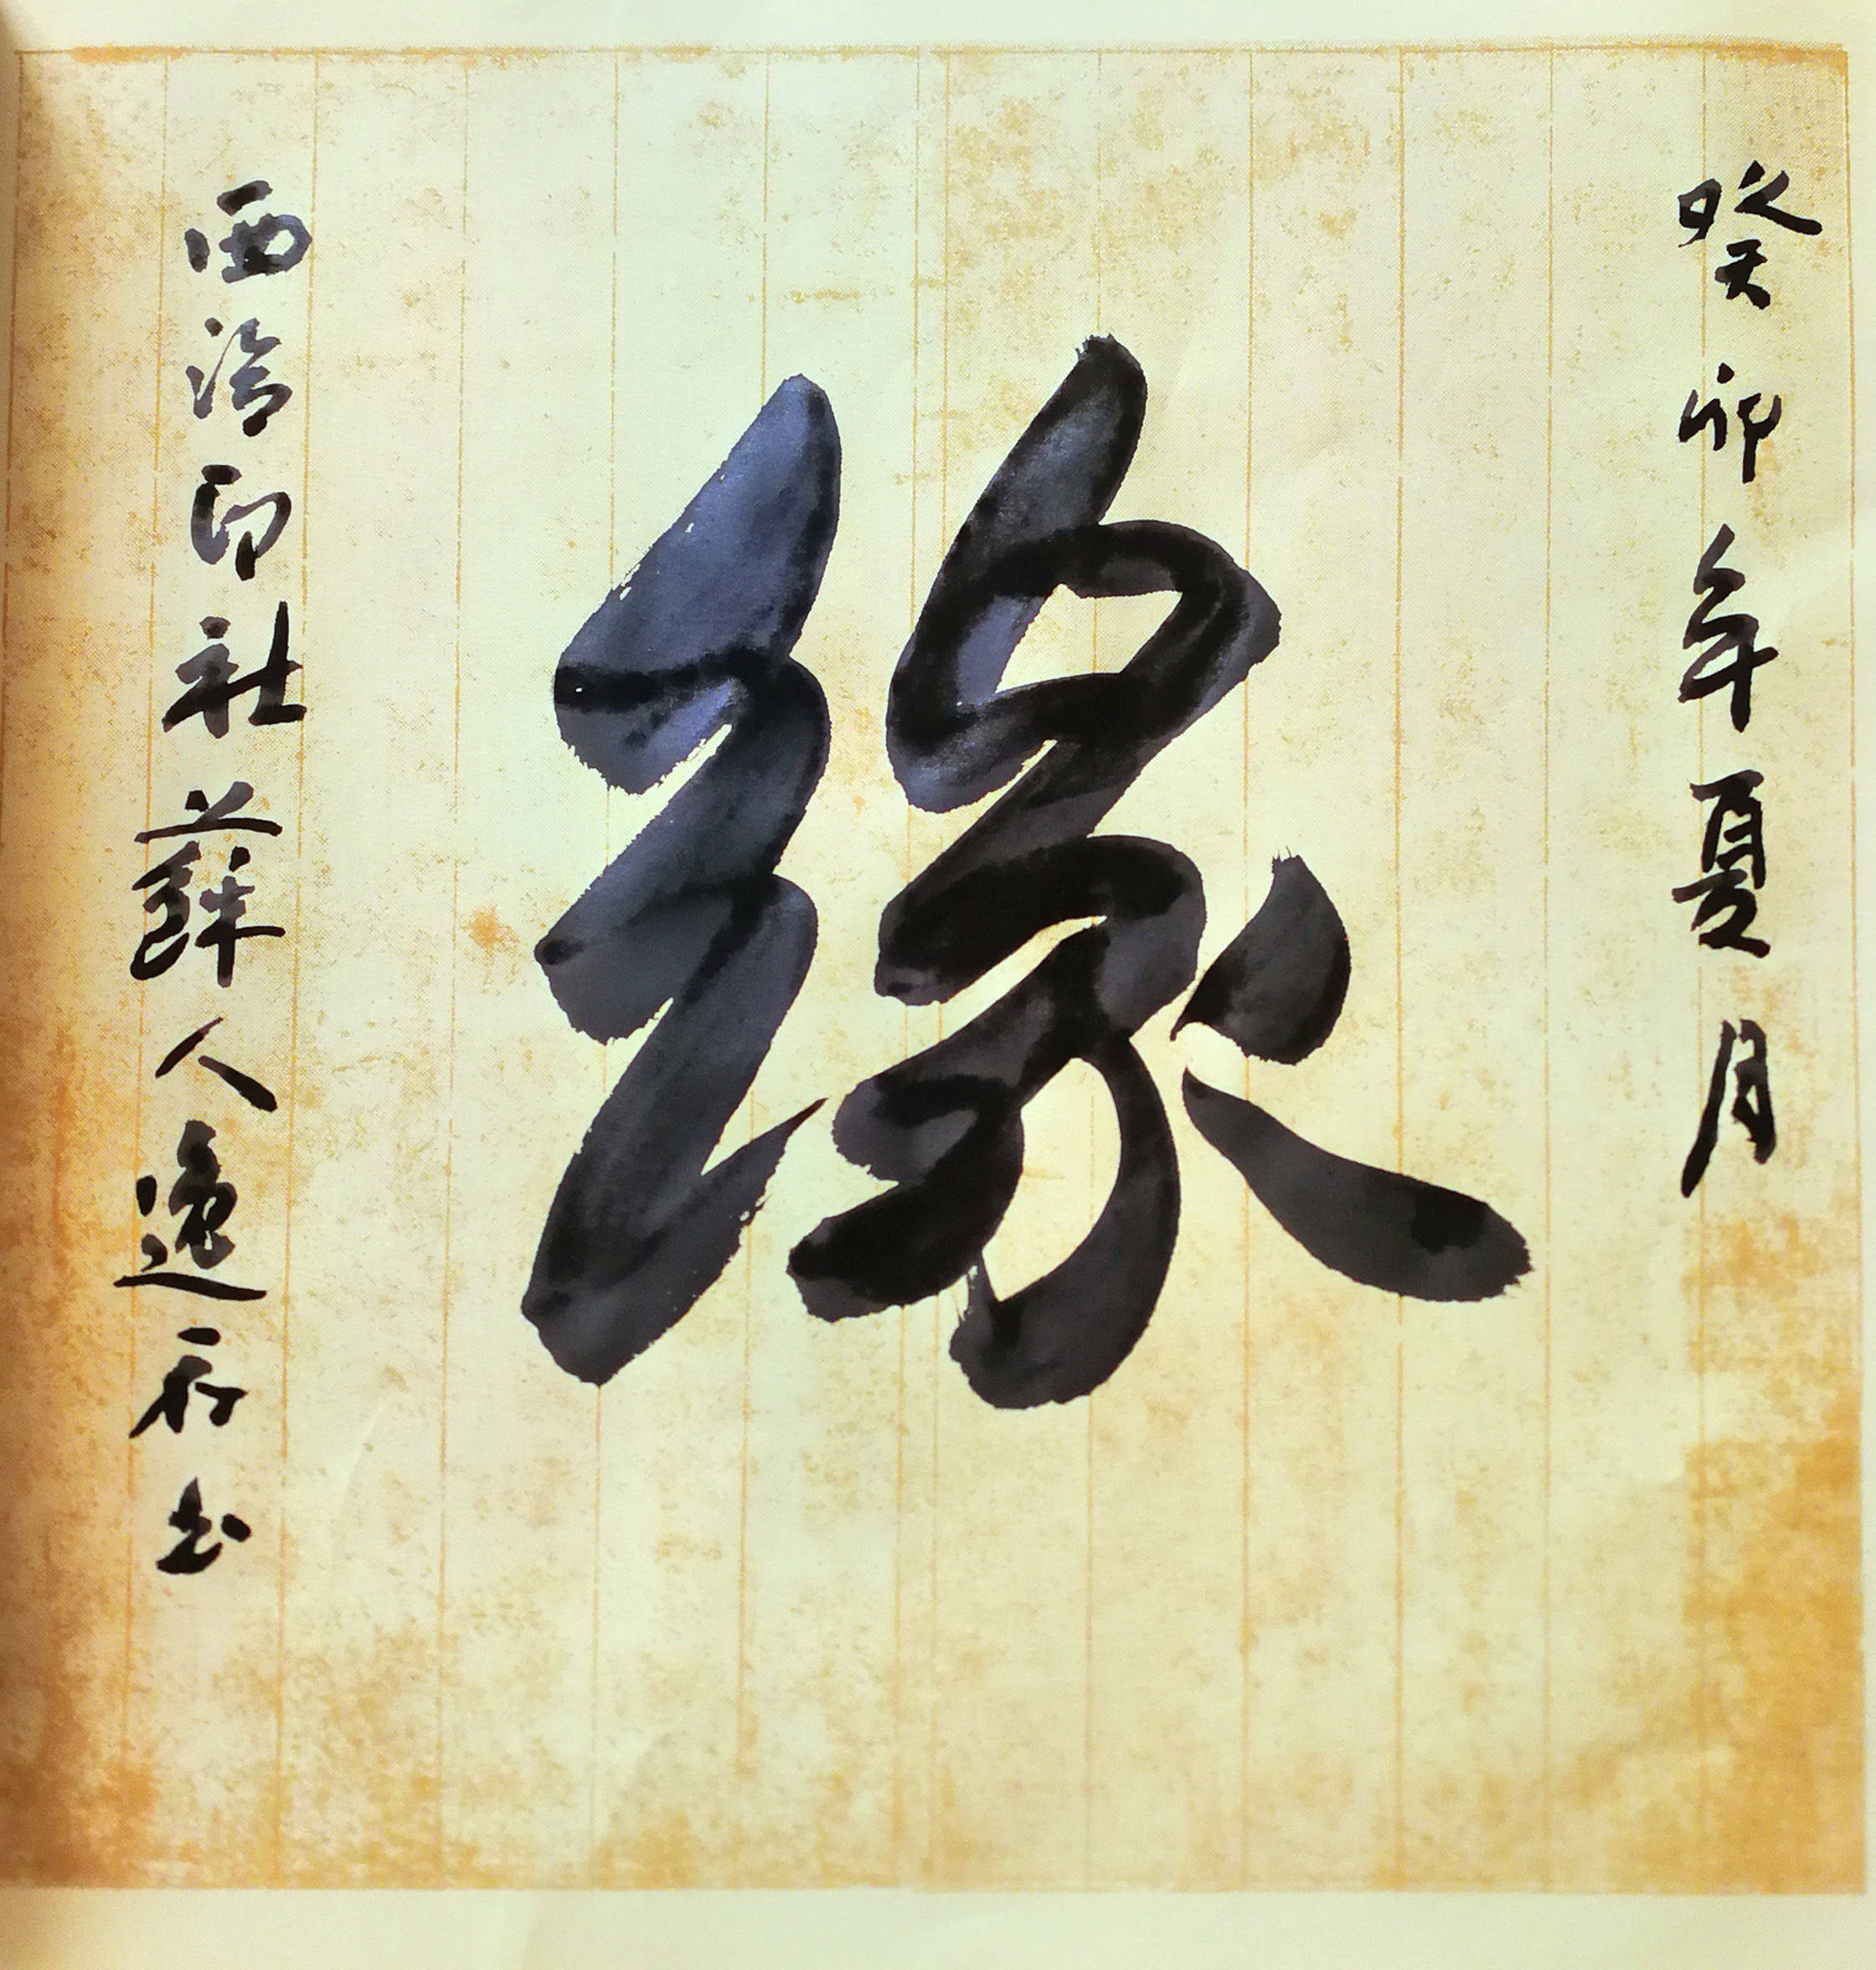 癸卯年夏月
缘
西泠印社薛人逸石书